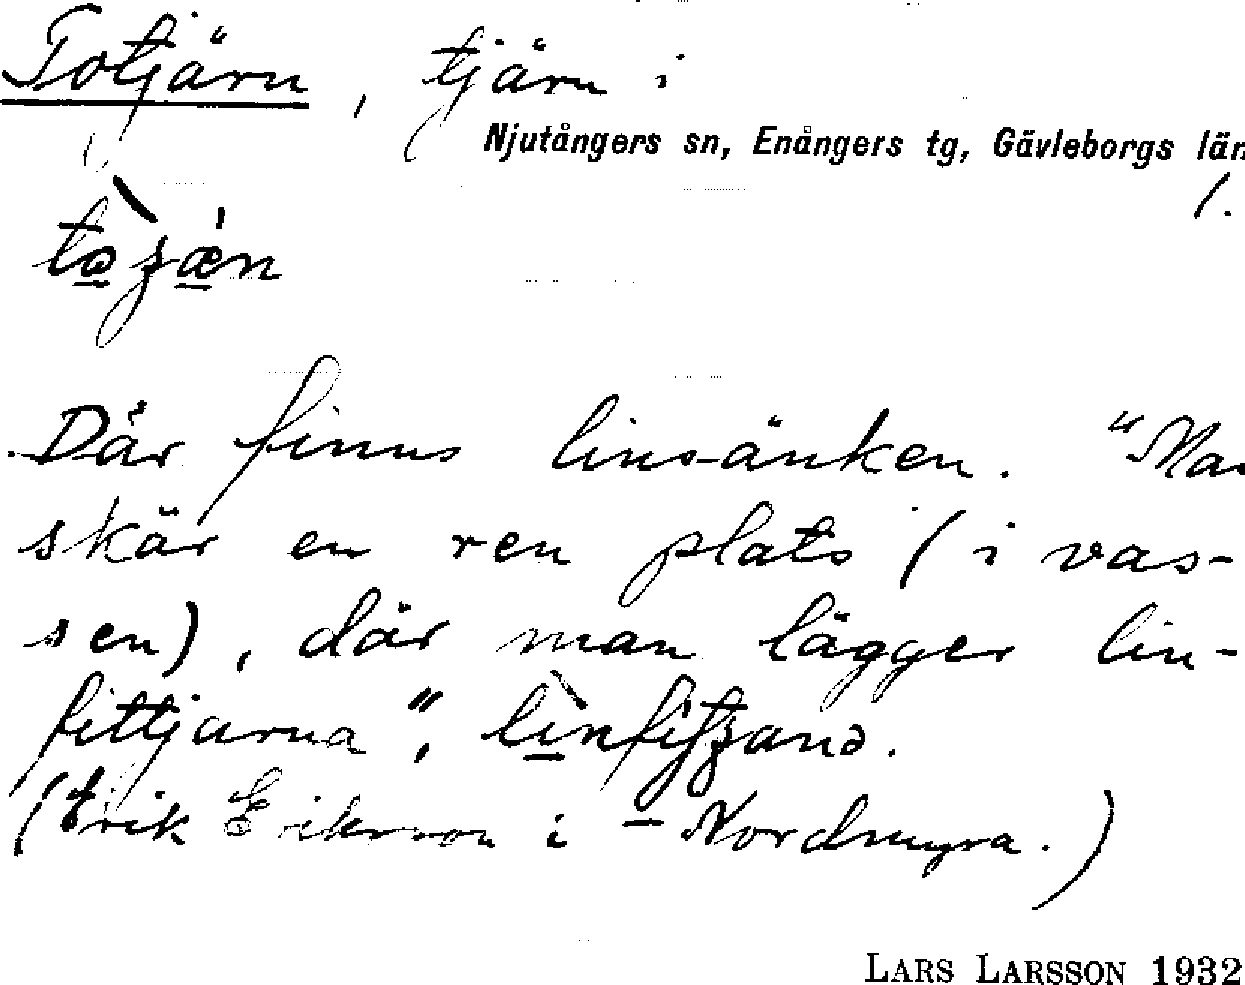 Totjärn, tjärn i
Njutångers sn, Enångers tg, Gävleborgs län
1.
Där finns linsänken. "Man
skär en ren plats (i vas-
sen), där man lägger lin-
fittjarna",
(Erik Eriksson i Nordmyra.)
LARS LARSSON 1932